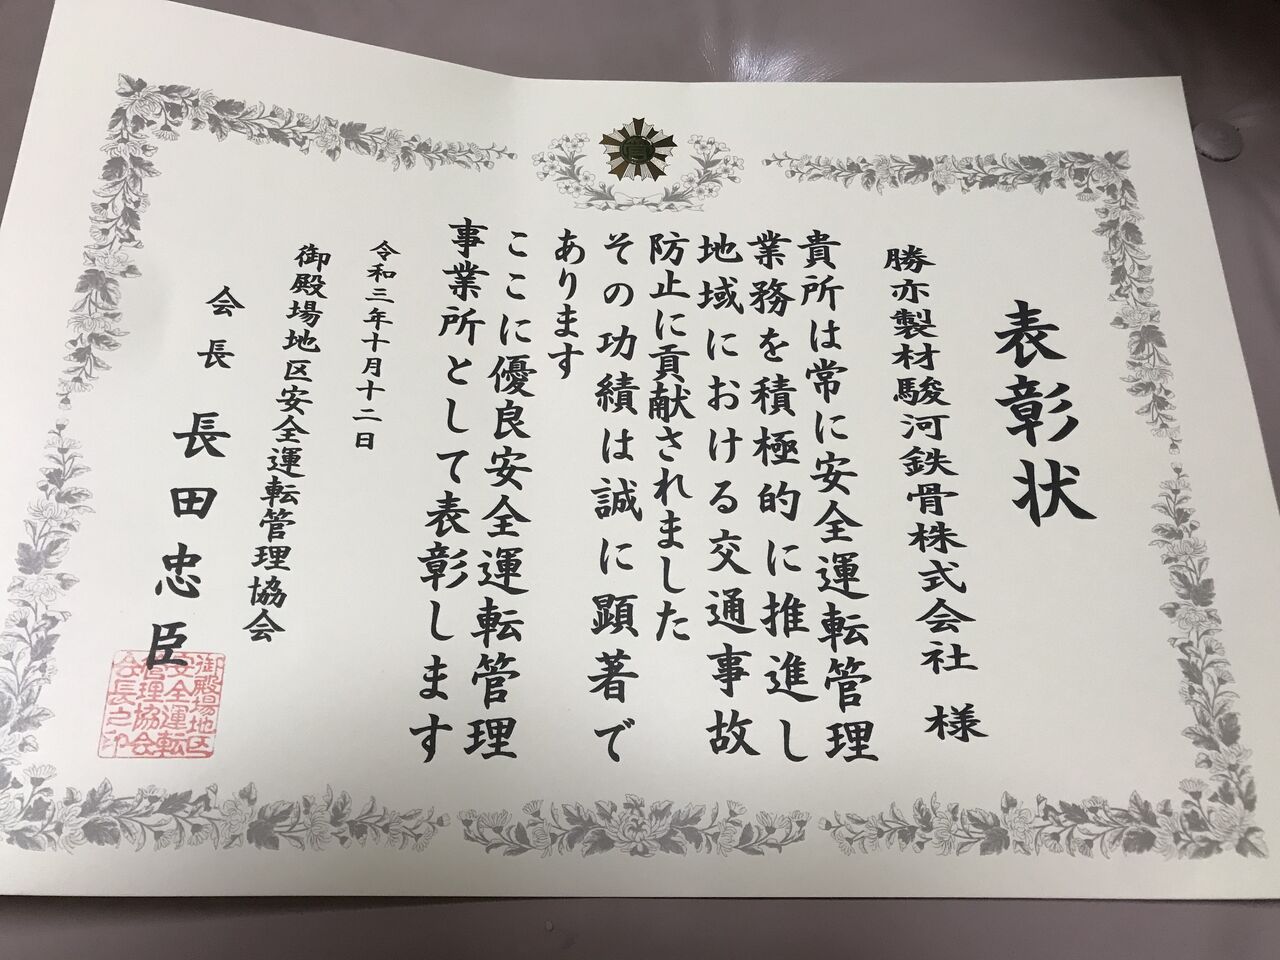 表彰状
勝亦製材駿河鉄骨株式会社 様
貴所は常に安全運転管理
業務を積極的に推進し
地域における交通事故
防止に貢献されました
その功績は誠に顕著で
あります
ここに優良安全運転管理
事業所として表彰します
令和三年十月十二日
御殿場地区安全運転管理協会
会長 長田忠臣
御殿場地区
安全運転
管理協会
会長之印